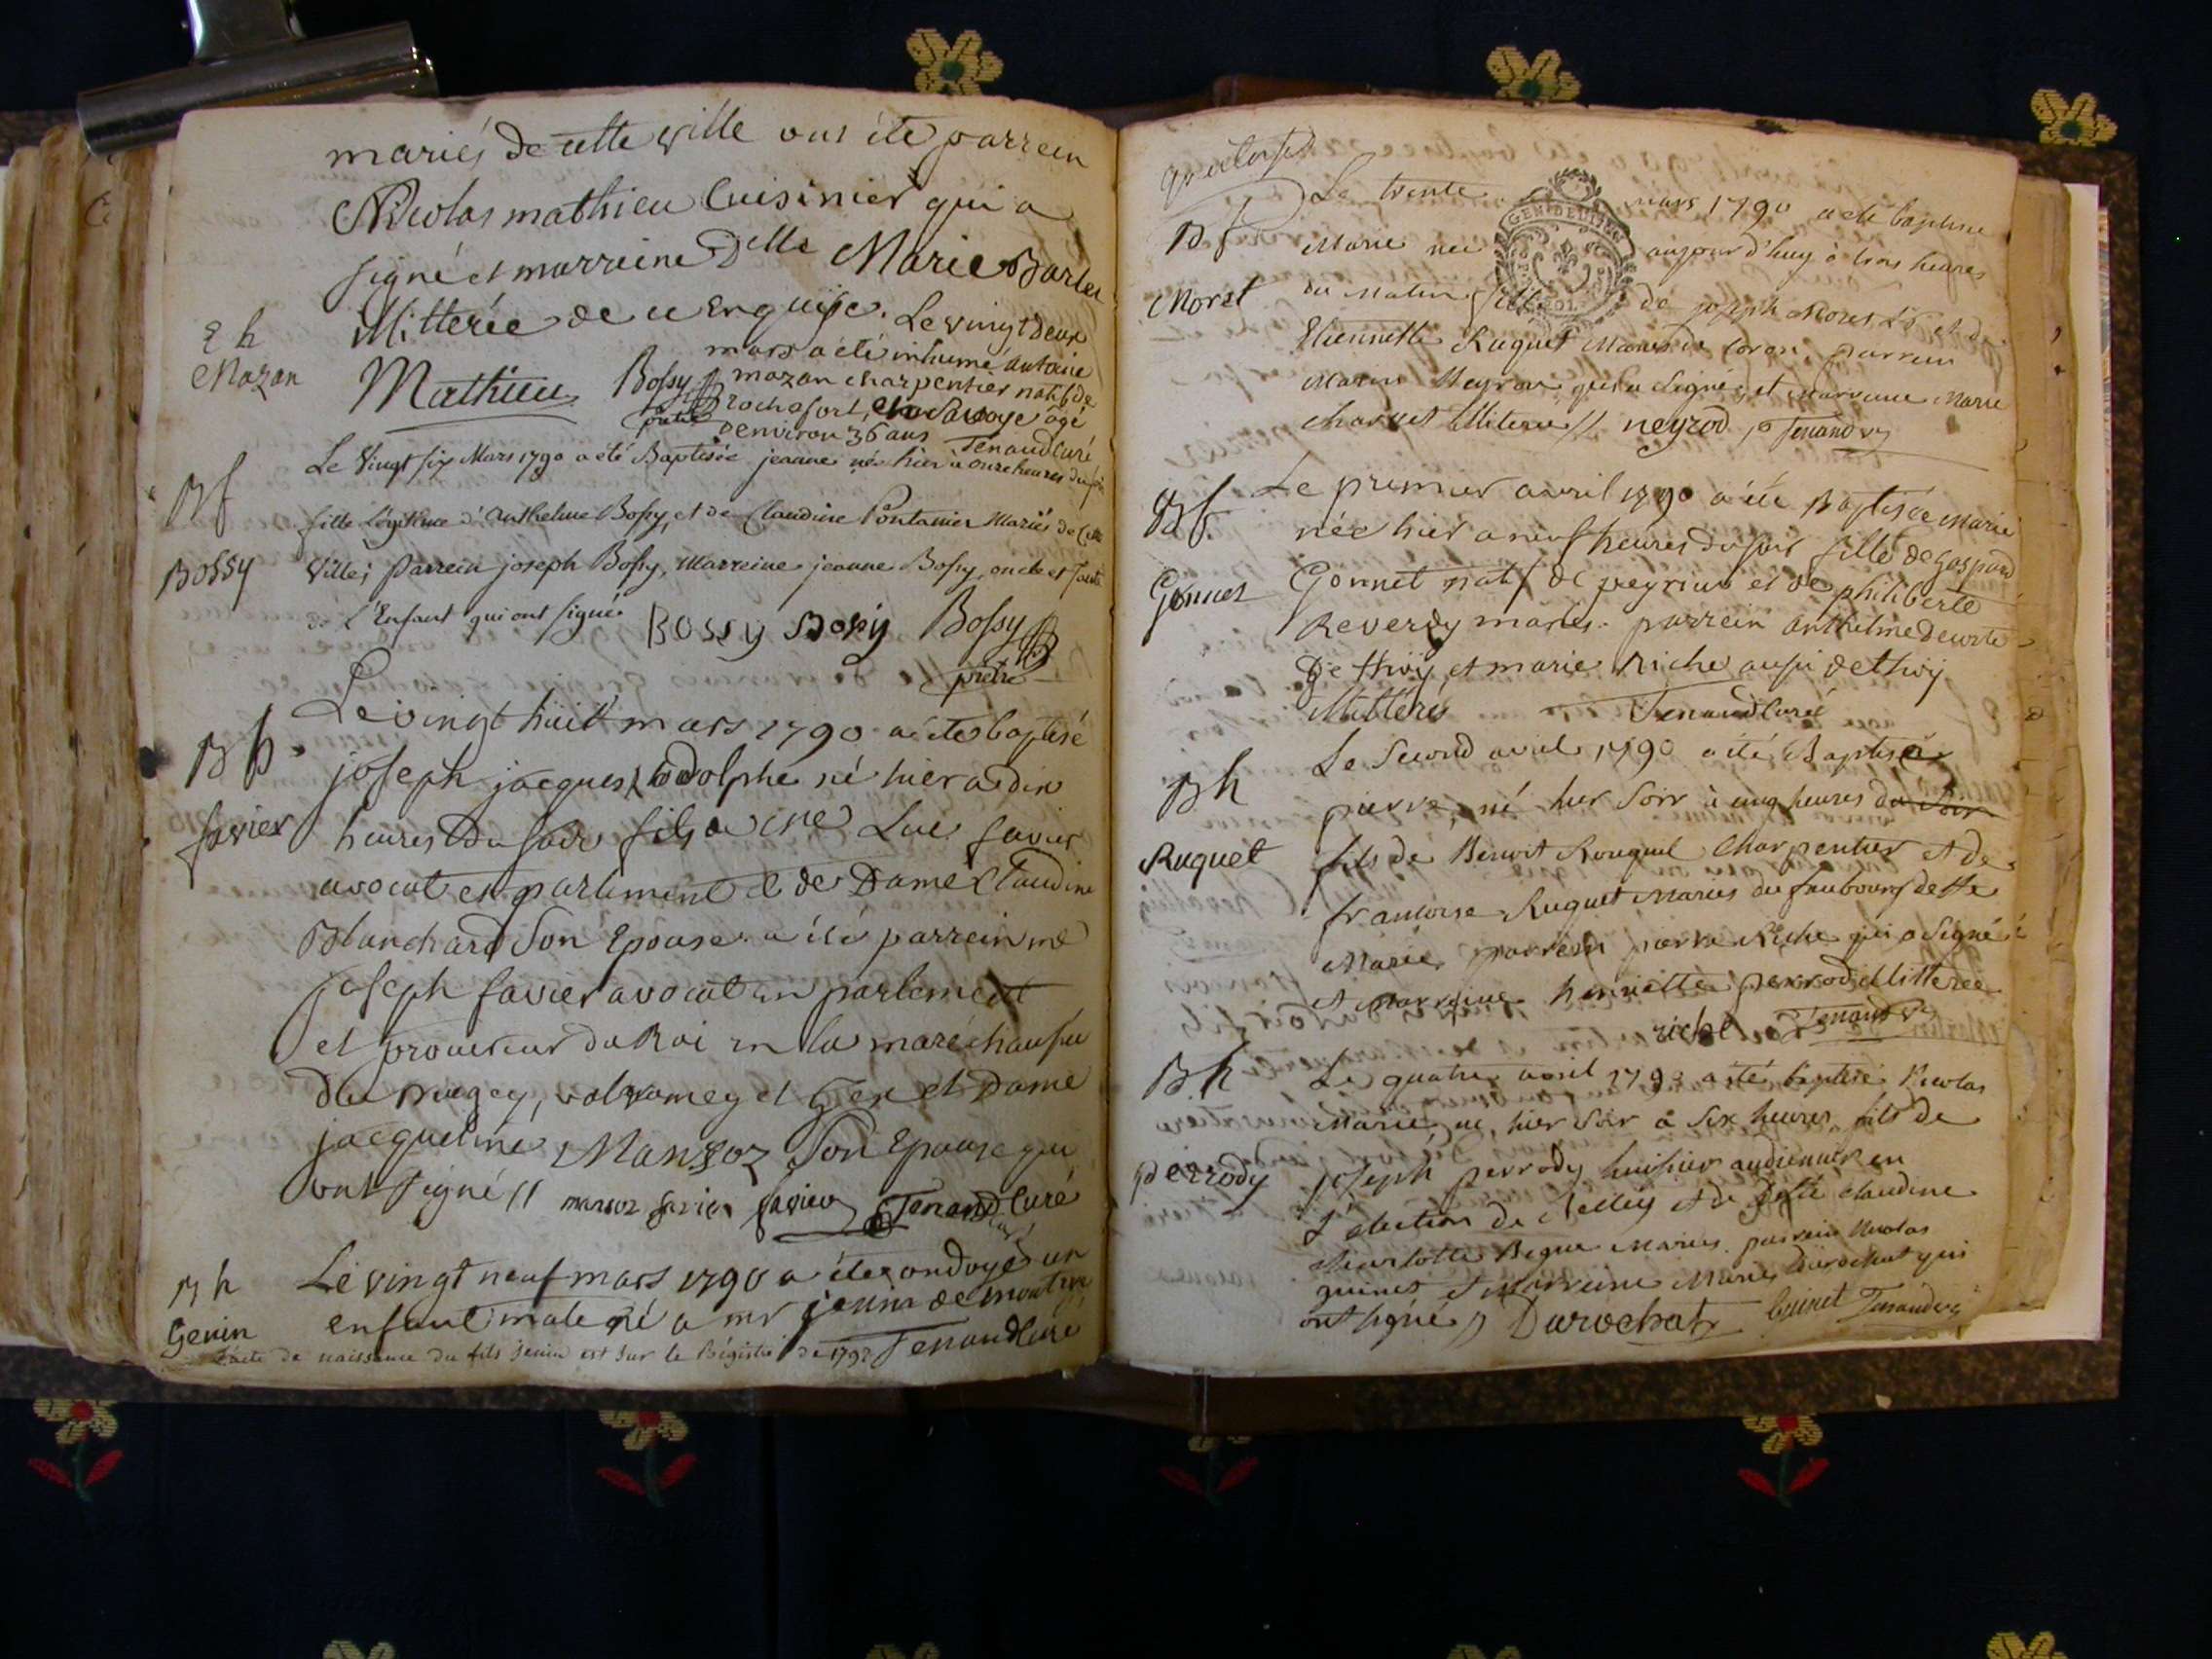 mariés de cette ville ont été parrein
Nicolas mathieu Cuisinier qui a
signé et marreine Dlle Marie Barbe
Mitterée de ce enquise.
Mathieu Bossy prêtre
Mazan
Le vingt deux
mars a été inhumé Antoine
mazan charpentier natif de
rochefort, en Savoye agé
d'environ 36 ans Tenand Curé
Bf
Bossy
Le Vingt six Mars 1790 a été Baptisée jeanne née hier à onze heures du soir
fille légitime d'Anthelme Bossy, et de Claudine Pontanier Mariés de Cette
Ville; Parrein joseph Bossy, Marreine jeanne Bossy, oncle et Tante
de l'Enfant qui ont signé. BOSSY Bossy Bossy
prêtre
Bh
favier
Le vingt huit mars 1790 a été baptisé
joseph jacques Rodolphe né hier a dix
heures du soir fils a me Luc favier
avocat en parlement et de Dame Claudine
Blanchard Son Epouse a été parrein me
joseph favier avocat en parlement
et procureur du Roi en la maréchaussée
du Bugey, valromey et Gex et Dame
jacqueline Mansoz Son Epouse qui
ont signé // mansoz favier favier Tenand Curé
Bh
Genin
Le vingt neuf mars 1790 a été ondoyé un
enfant male né a mr jenin de montin
Tenand Curé
L'acte de naissance du fils Jenin est sur le Régistre de 1792
Bf
Moret
Le trente mars 1790 a été baptisée
Marie née aujourd'huy à trois heures
du Matin fille de joseph Moret et de
Etiennette Ruguet Mariés de Coron, parrein
Marin Neyrod qui a Signé, et marreine Marie
Charvet Illiterée // neyrod, Tenand
GEN DE DIJON
Bf
Gonnet
Le premier avril 1790 a été Baptisée marie
née hier a neuf heures du soir fille de Gaspard
Gonnet natif de peyrieu et de philiberte
Reverdy mariés. parrein anthelme
de thoÿ et marie Riche aussi de thoÿ
Illitterés Tenand Curé
Bh
Ruguet
Le Second avril 1790 a été Baptisé
pierre, né hier Soir à cinq heures du soir
fils de Benoit Rouguet Charpentier et de
francoise Ruguet Mariés du faubourg de Ste
Marie, parrein pierre Riche qui a Signé
et marreine henriette perrod illitterée
riche Tenand
Bh
perrody
Le quatre avril 1790 a été baptisé Nicolas
Marie, né hier Soir à Six heures, fils de
joseph perrody huissier audiencier en
l'élection de Belley et de Dlle Claudine
Charlotte Begue Mariés. parrein Nicolas
guinet et Marreine Marie Durochat qui
ont signé // Durochat Guinet Tenand